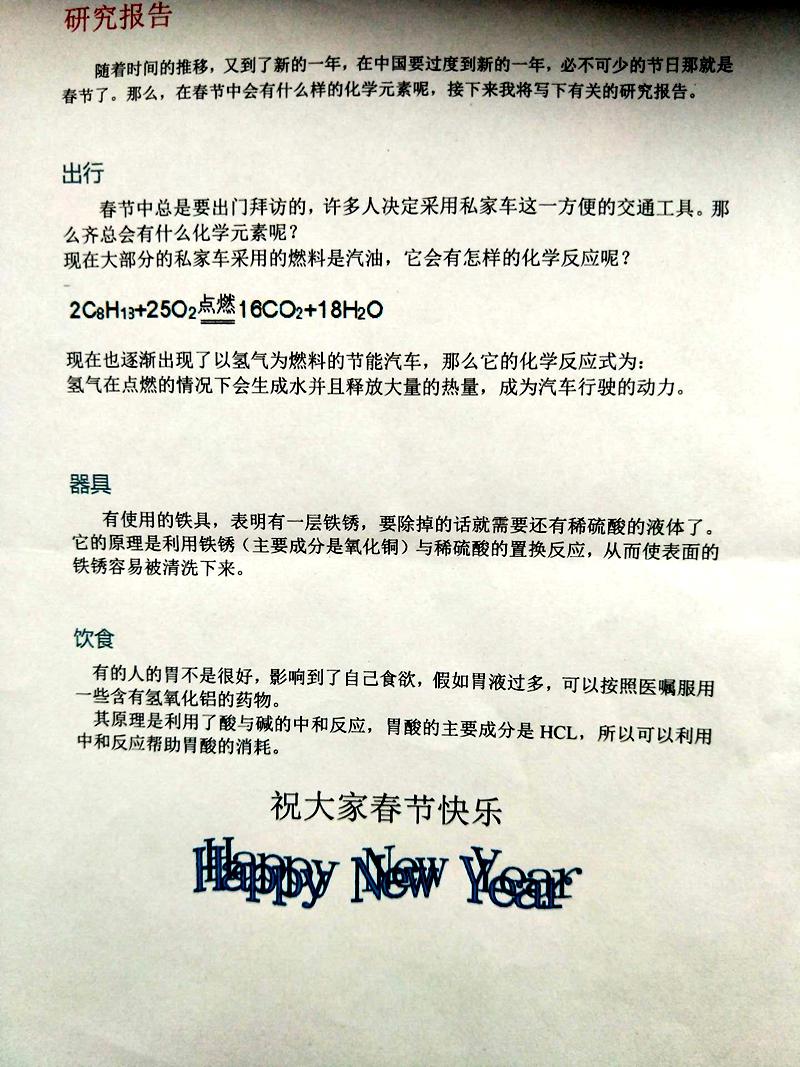 研究报告
随着时间的推移，又到了新的一年，在中国要过度到新的一年，必不可少的节日那就是
春节了。那么，在春节中会有什么样的化学元素呢，接下来我将写下有关的研究报告。
出行
春节中总是要出门拜访的，许多人决定采用私家车这一方便的交通工具。那
么齐总会有什么化学元素呢？
现在大部分的私家车采用的燃料是汽油，它会有怎样的化学反应呢？
2C8H18+25O2点燃16CO2+18H2O
现在也逐渐出现了以氢气为燃料的节能汽车，那么它的化学反应式为：
氢气在点燃的情况下会生成水并且释放大量的热量，成为汽车行驶的动力。
器具
有使用的铁具，表明有一层铁锈，要除掉的话就需要还有稀硫酸的液体了。
它的原理是利用铁锈（主要成分是氧化铜）与稀硫酸的置换反应，从而使表面的
铁锈容易被清洗下来。
饮食
有的人的胃不是很好，影响到了自己食欲，假如胃液过多，可以按照医嘱服用
一些含有氢氧化铝的药物。
其原理是利用了酸与碱的中和反应，胃酸的主要成分是 HCL，所以可以利用
中和反应帮助胃酸的消耗。
祝大家春节快乐
Happy New Year